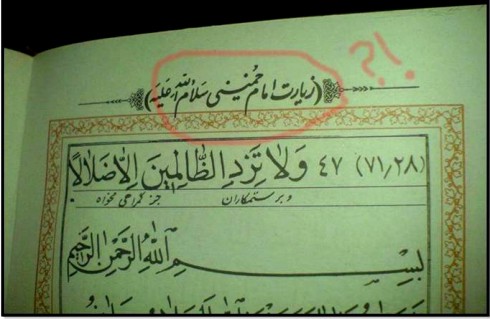 (زیارت امام خمینی سلام الله علیه)
?!
(۷۱٫۲۸) ۴۷ وَلَا تَزِدِ الظَّالِمِينَ إِلَّا ضَلَالًا
و بر ستمکاران جز گمراهی مخواه
بِسْمِ اللَّهِ الرَّحْمَنِ الرَّحِيمِ